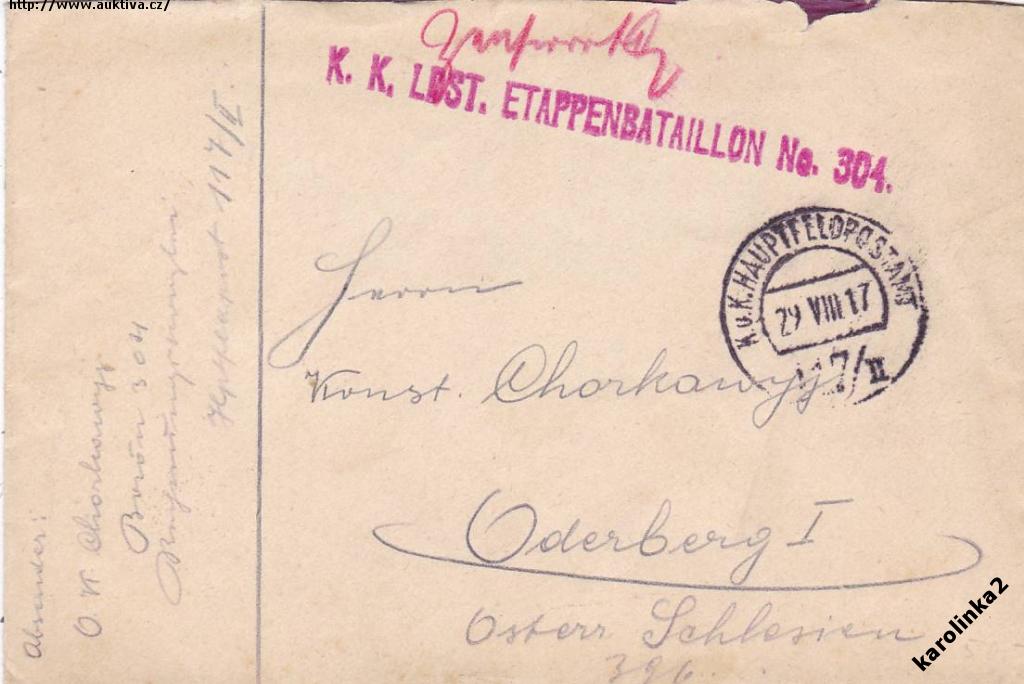 http://www.auktiva.cz/
K. K. LDST. ETAPPENBATAILLON No. 304.
K.u.K. HAUPTFELDPOSTAMT
29 VIII 17
117/II
Herrn
Konst. Chorkawyj
Oderberg I
Österr Schlesien
396
Absener:
O. W. Chorkawyj
Baon 304
117/II.
karolinka2